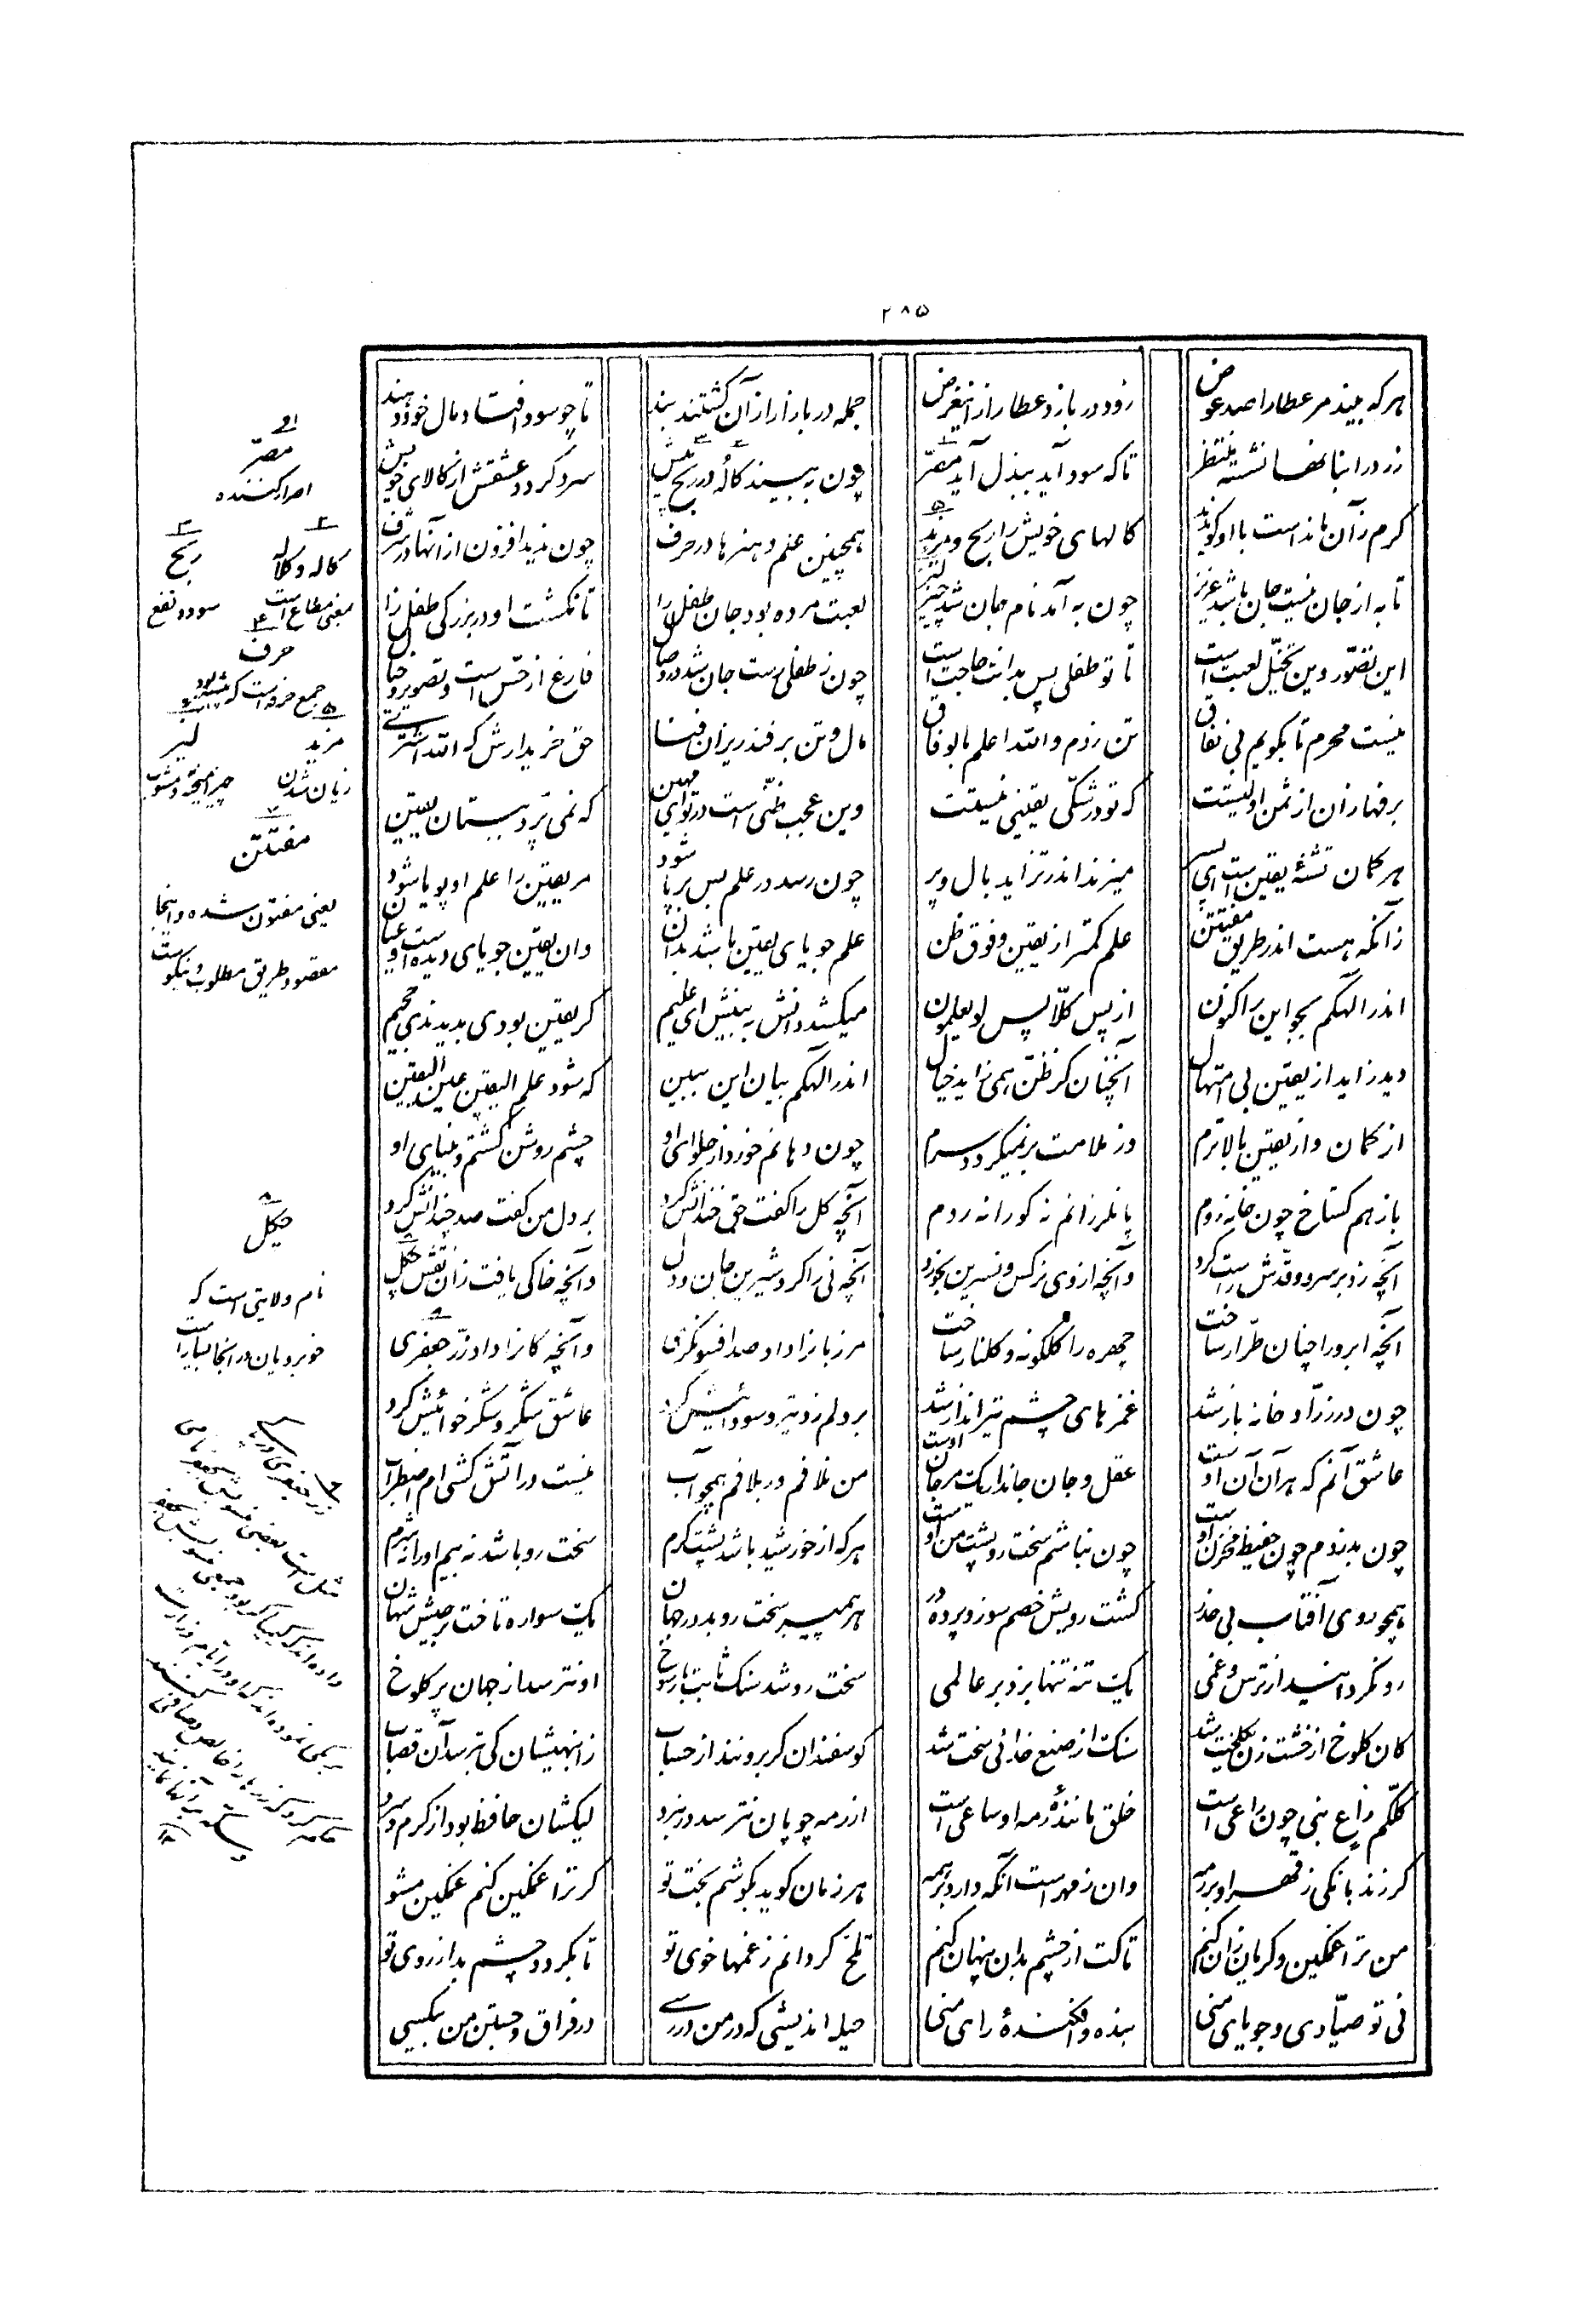 ۲۸۵
هرکه بیند مر عطا را صد عوض زود دربازد عطا را زین غرض جمله در بازار از آن گشتند بند تا چو سود افتاد مال خود دهند
زر در انبانها نشسته منتظر تا که سود آید ببذل آید مصر چون ببیند کاله در ربح بیش سرد گردد عشقش از کالای خویش
گرم زآن ماندست با او کو ندید کالهای خویش را ربح و مزید همچنین علم و هنرها و حرف چون ندید افزون از آنها در شرف
تا به از جان نیست جان باشد عزیز چون به آمد نام جان شد چیز لیز لعبت مرده بود جان طفل را تا نگشت او در بزرگی طفل زا
این تصور وین تخیل لعبت است تا تو طفلی پس بدانت حاجت است چون ز طفلی رست جان شد در وصال فارغ از حس است و تصویر و خیال
نیست محرم تا بگویم بی نفاق تن زدم والله اعلم بالوفاق مال و تن برفند ریزان فنا حق خریدارش که الله اشتری
برفها زان از ثمن اولیستت که تو در شکی یقینی نیستت وین عجب ظنی است در تو ای مهین که نمی پرد ببستان یقین
هر گمان تشنه یقین است ای پسر میزند اندر تزاید بال و پر چون رسد در علم پس برپا شود مر یقین را علم او پویا شود
زآنکه هست اندر طریق مفتتن علم کمتر از یقین و فوق ظن علم جویای یقین باشد بدان وان یقین جویای دیدست و عیان
اندر الهکم بجو این را کنون از پس کلا پس لو یعلمون میکشد دانش ببینش ای علیم گر یقین بودی بدیدندی جحیم
دید زاید از یقین بی امتهال آنچنان کز ظن همی زاید خیال اندر الهکم بیان این ببین که شود علم الیقین عین الیقین
از گمان و از یقین بالاترم وز ملامت برنمیگردد سرم چون دهانم خورد از حلوای او چشم روشن گشتم و بینای او
پا نهم گستاخ چون خانه روم پا نلرزانم نه کورانه روم آنچه گل را گفت حق خندانش کرد بر دل من گفت صد چندانش کرد
آنچه زد بر سرو و قدش راست کرد وآنچه از وی نرگس و نسرین بخورد آنچه نی را کرد شیرین جان و دل وآنچه خاکی یافت زان نقش چگل
آنچه ابرو را چنان طرار ساخت چهره را گلگونه و گلنار ساخت مر زبانرا داد صد افسونگری وآنچه کانرا داد زر جعفری
چون در زرادخانه باز شد غمزهای چشم تیرانداز شد بر دلم زد تیر و سودائیش کرد عاشق شکر و شکرخوائیش کرد
عاشق آنم که هر آن آن اوست عقل و جان جاندار یک مرجان اوست من نلافم ور بلافم همچو آب نیست در آتش کشی ام اضطراب
چون بدزدم چون حفیظ مخزن اوست چون نباشم سخت رو پشت من اوست هر که از خورشید باشد پشت گرم سخت رو باشد نه بیم او را نه شرم
همچو روی آفتاب بی حذر گشت رویش خصم سوز و پرده در هر پیمبر سخت رو بد در جهان یک سواره تاخت بر جیش شهان
رو نگردانید از ترس و غمی یک تنه تنها بزد بر عالمی سخت رو شد سنک ثابت با رسوخ او نترسد از جهان پر کلوخ
کان کلوخ از خشت زن یکلخت شد سنک از صنع خدائی سخت شد گوسفندان گر برونند از حساب ز انبهیشان کی بترسد آن قصاب
کلکم راع نبی چون راعی است خلق مانند رمه او ساعی است از رمه چوپان نترسد در نبرد لیکشان حافظ بود از گرم و سرد
گر زند بانکی ز قهر او بر رمه وان ز مهر است آنکه دارد بر همه هر زمان گوید بگوشم بخت تو گر ترا غمگین کنم غمگین مشو
من ترا غمگین و گریان زان کنم تا کت از چشم بدان پنهان کنم تلخ گردانم ز غمها خوی تو تا بگردد چشم بد از روی تو
نی تو صیادی و جویای منی بنده و افکندهٔ رای منی حیله اندیشی که در من در رسی در فراق و جستن من بیکسی
مصر
اصرار کننده
۲
کاله و کالا
بمعنی متاع است
۳
ربح
سود و نفع
۴
حرف
جمع حرفه است که پیشه بود
۵
مزید
زیان شدن
لیز
چیز آمیخته و مشوب
۷
مفتتن
یعنی مفتون شده و اینجا
مقصود طریق مطلوب و نیکوست
۸
چگل
نام ولایتی است که
خوبرویان در آنجا بسیار است